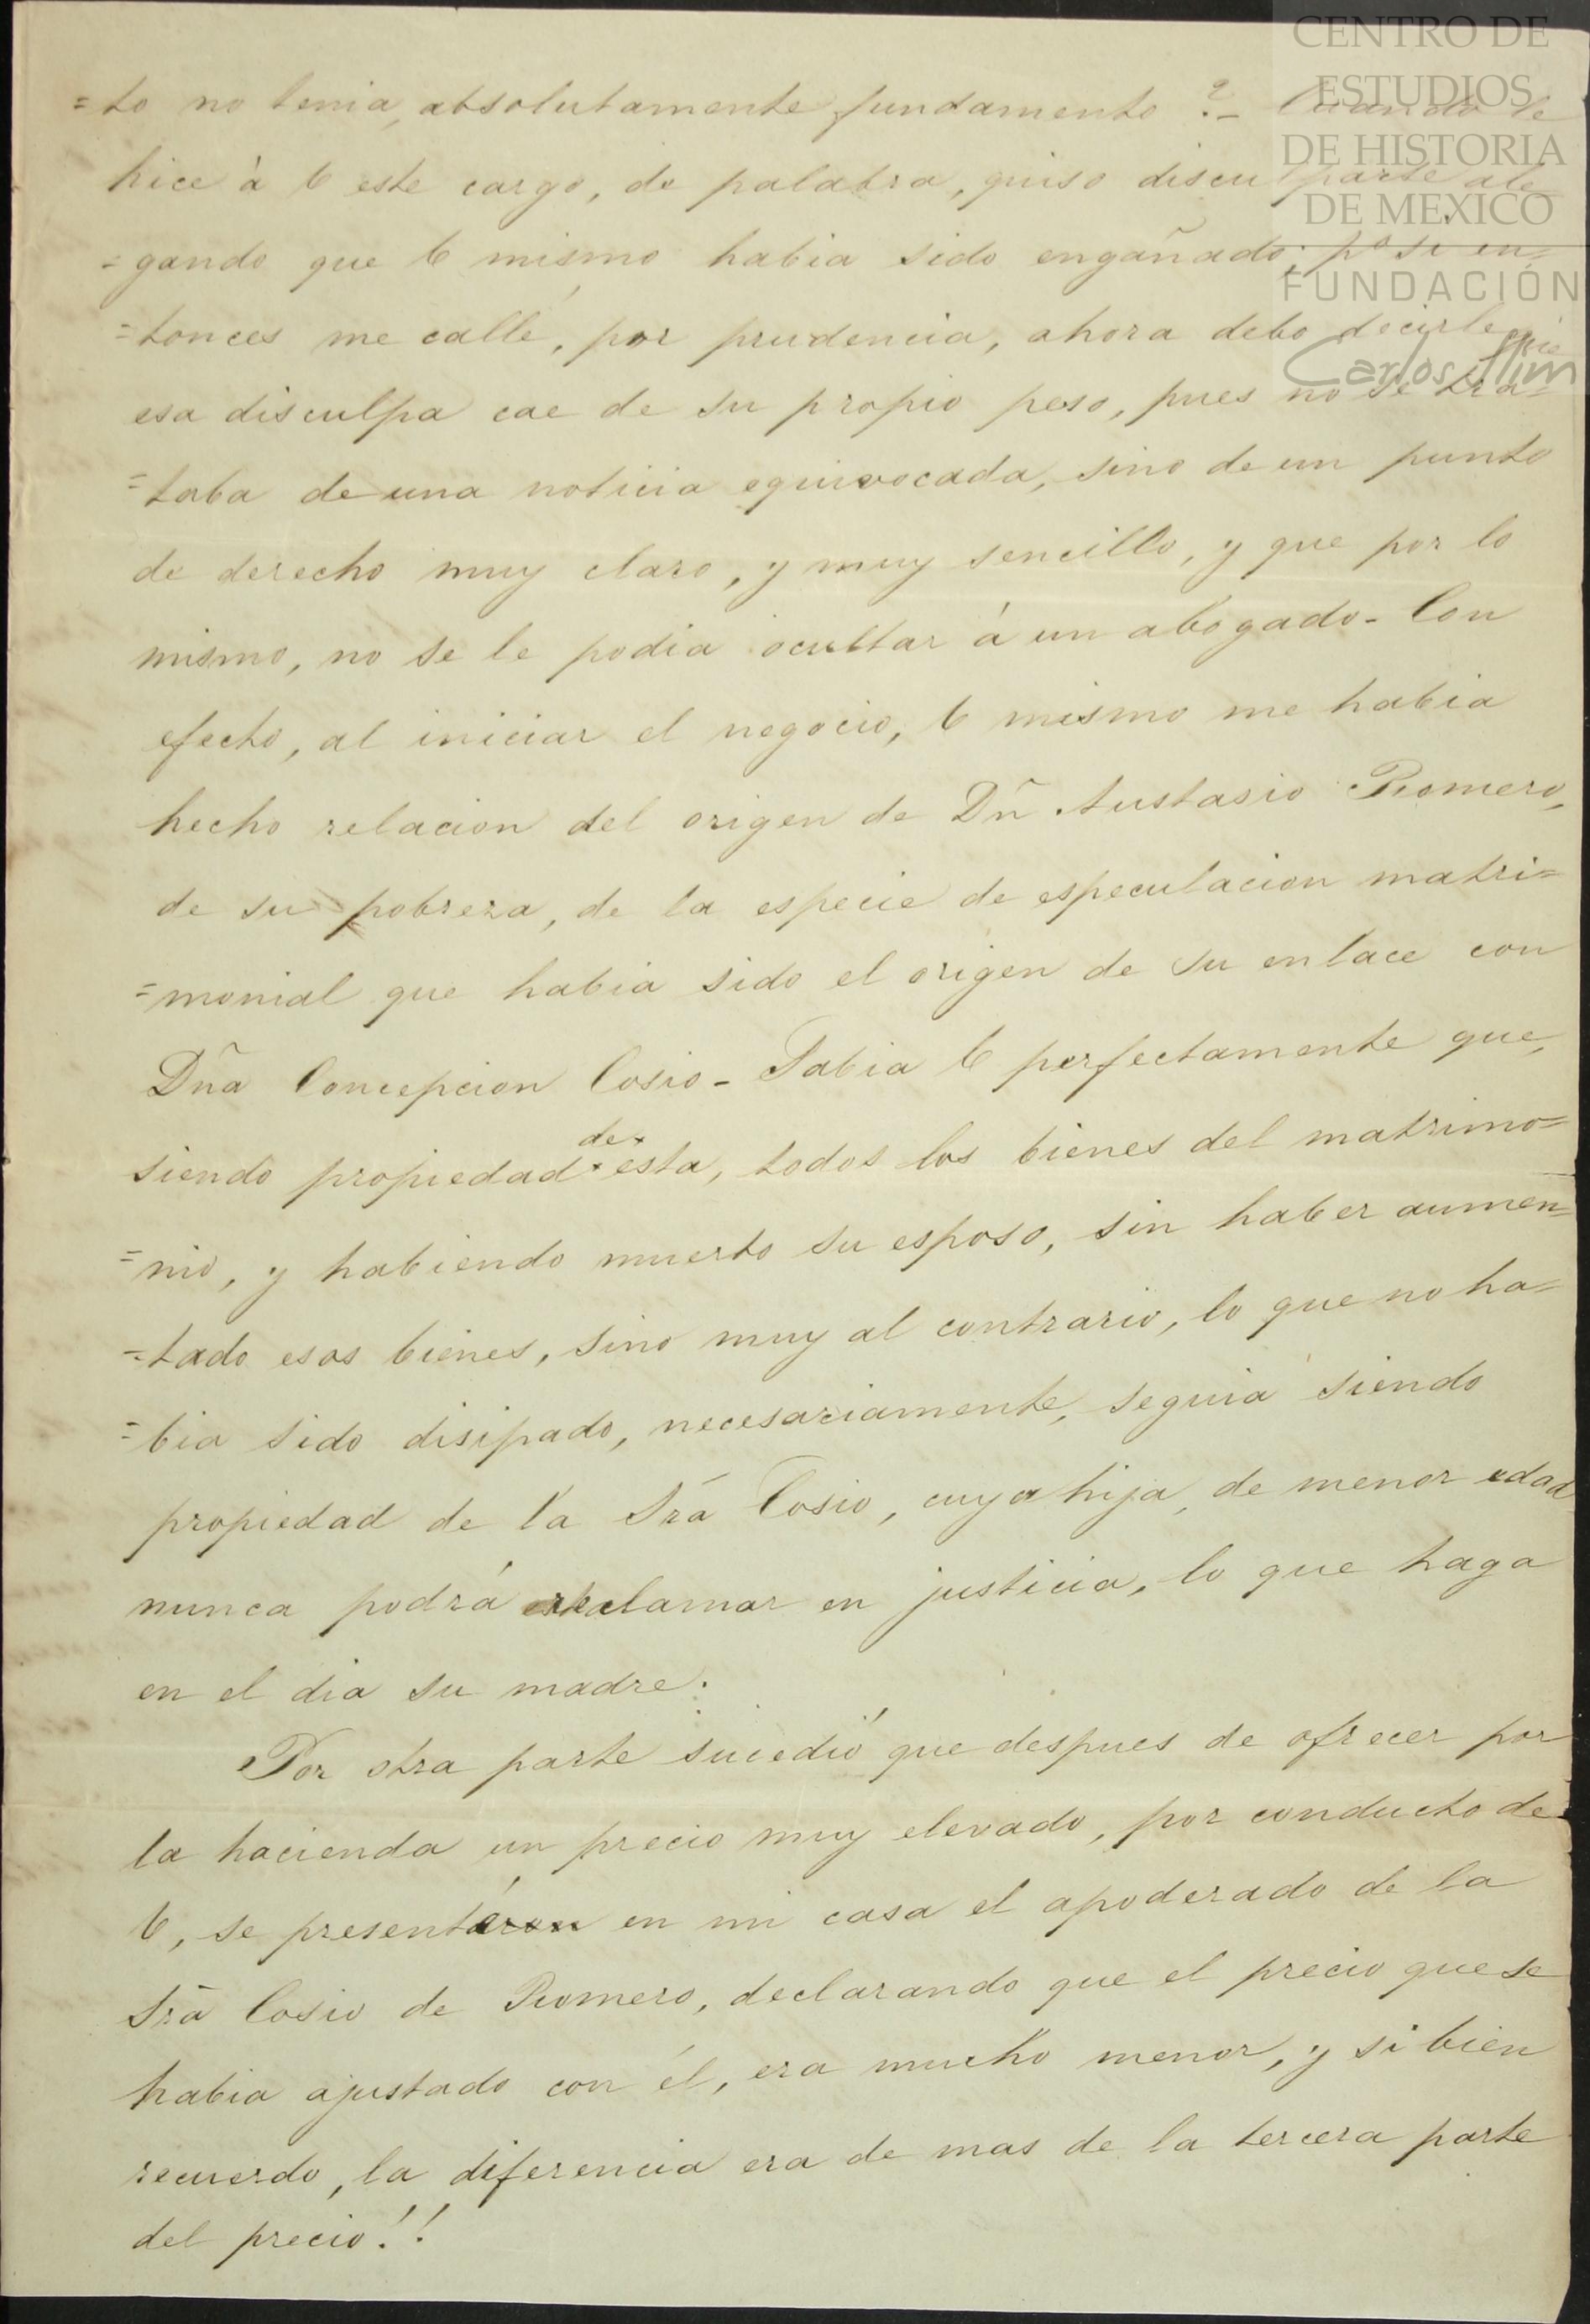 CENTRO DE
ESTUDIOS
DE HISTORIA
DE MEXICO
FUNDACIÓN
Carlos Slim
=to no tenia, absolutamente fundamento ?- Cuando le
hice à V este cargo, de palabra, quiso disculparse ale
=gando que V mismo habia sido engañado; pº si en=
=tonces me callé, por prudencia, ahora debo decirle que
esa disculpa cae de su propio peso, pues no se tra=
=taba de una noticia equivocada, sino de un punto
de derecho muy claro, y muy sencillo, y que por lo
mismo, no se le podia ocultar á un abogado- Con
efecto, al iniciar el negocio, V mismo me habia
hecho relacion del origen de Dn̄ Anastasio Romero,
de su pobreza, de la especie de especulacion matri=
=monial que habia sido el origen de su enlace con
Dña Concepcion Cosio- Sabia V perfectamente que,
siendo propiedad de esta, todos los bienes del matrimo=
=nio, y habiendo muerto su esposo, sin haber aumen=
=tado esos bienes, sino muy al contrario, lo que no ha=
=bia sido disipado, necesariamente, seguia siendo
propiedad de la Srã Cosio, cuya hija, de menor edad
nunca podrá reclamar en justicia, lo que haga
en el dia su madre.
Por otra parte sucedió que despues de ofrecer por
la hacienda un precio muy elevado, por conducto de
V, se presentó en mi casa el apoderado de la
Srã Cosio de Romero, declarando que el precio que se
habia ajustado con él, era mucho menor, y si bien
recuerdo, la diferencia era de mas de la tercera parte
del precio!!